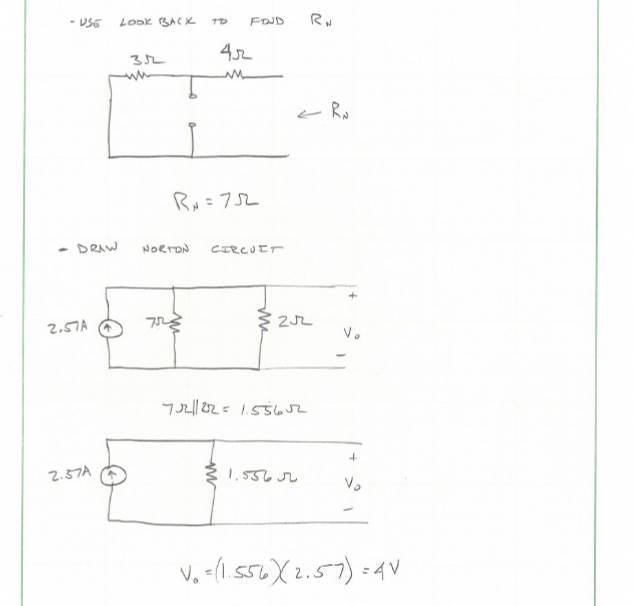 - USE LOOK BACK TO FIND RN
3Ω 4Ω
← RN
RN = 7Ω
- DRAW NORTON CIRCUIT
2.57A 7Ω 2Ω + Vo -
7Ω||2Ω = 1.556Ω
2.57A 1.556Ω + Vo -
Vo = (1.556)(2.57) = 4V